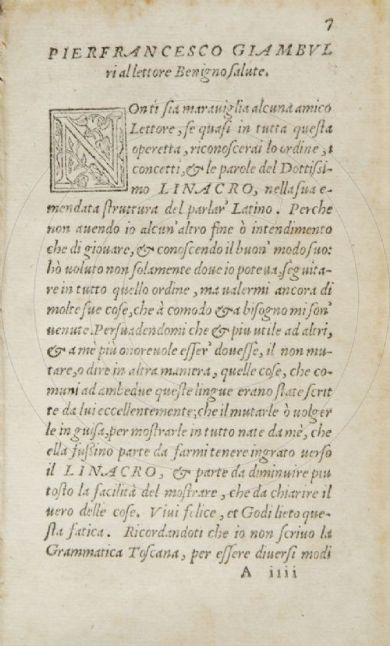 7
PIERFRANCESCO GIAMBVL
ri al lettore Benigno salute.
NOnti sia maraviglia alcuna amico
Lettore, se quasi in tutta questa
operetta, riconoscerai lo ordine, i
concetti, & le parole del Dottissi
mo LINACRO, nella sua e-
mendata struttura del parlar' Latino. Perche
non auendo io alcun' altro fine ò intendimento
che di giovare, & conoscendo il buon' modo suo:
hò voluto non solamente dove io poteva, seguita-
re in tutto quello ordine, ma valermi ancora di
molte sue cose, che à comodo & a bisogno mi son'
venute. Persuadendomi che & piu utile ad altri,
& a mè più onorevole esser' dovesse, il non mu-
tare, o dire in altra maniera, quelle cose, che co-
muni ad ambedue queste lingue erano state scrit
te da lui eccellentemente; che il mutarle ò volger
le in guisa, per mostrarle in tutto nate da mè, che
ella fussino parte da farmi tenere ingrato verso
il LINACRO, & parte da diminuire piu
tosto la facilità del mostrare, che da chiarire il
vero delle cose. Vivi felice, et Godi lieto que-
sta fatica. Ricordandoti che io non scrivo la
Grammatica Toscana, per essere diversi modi
A iiii